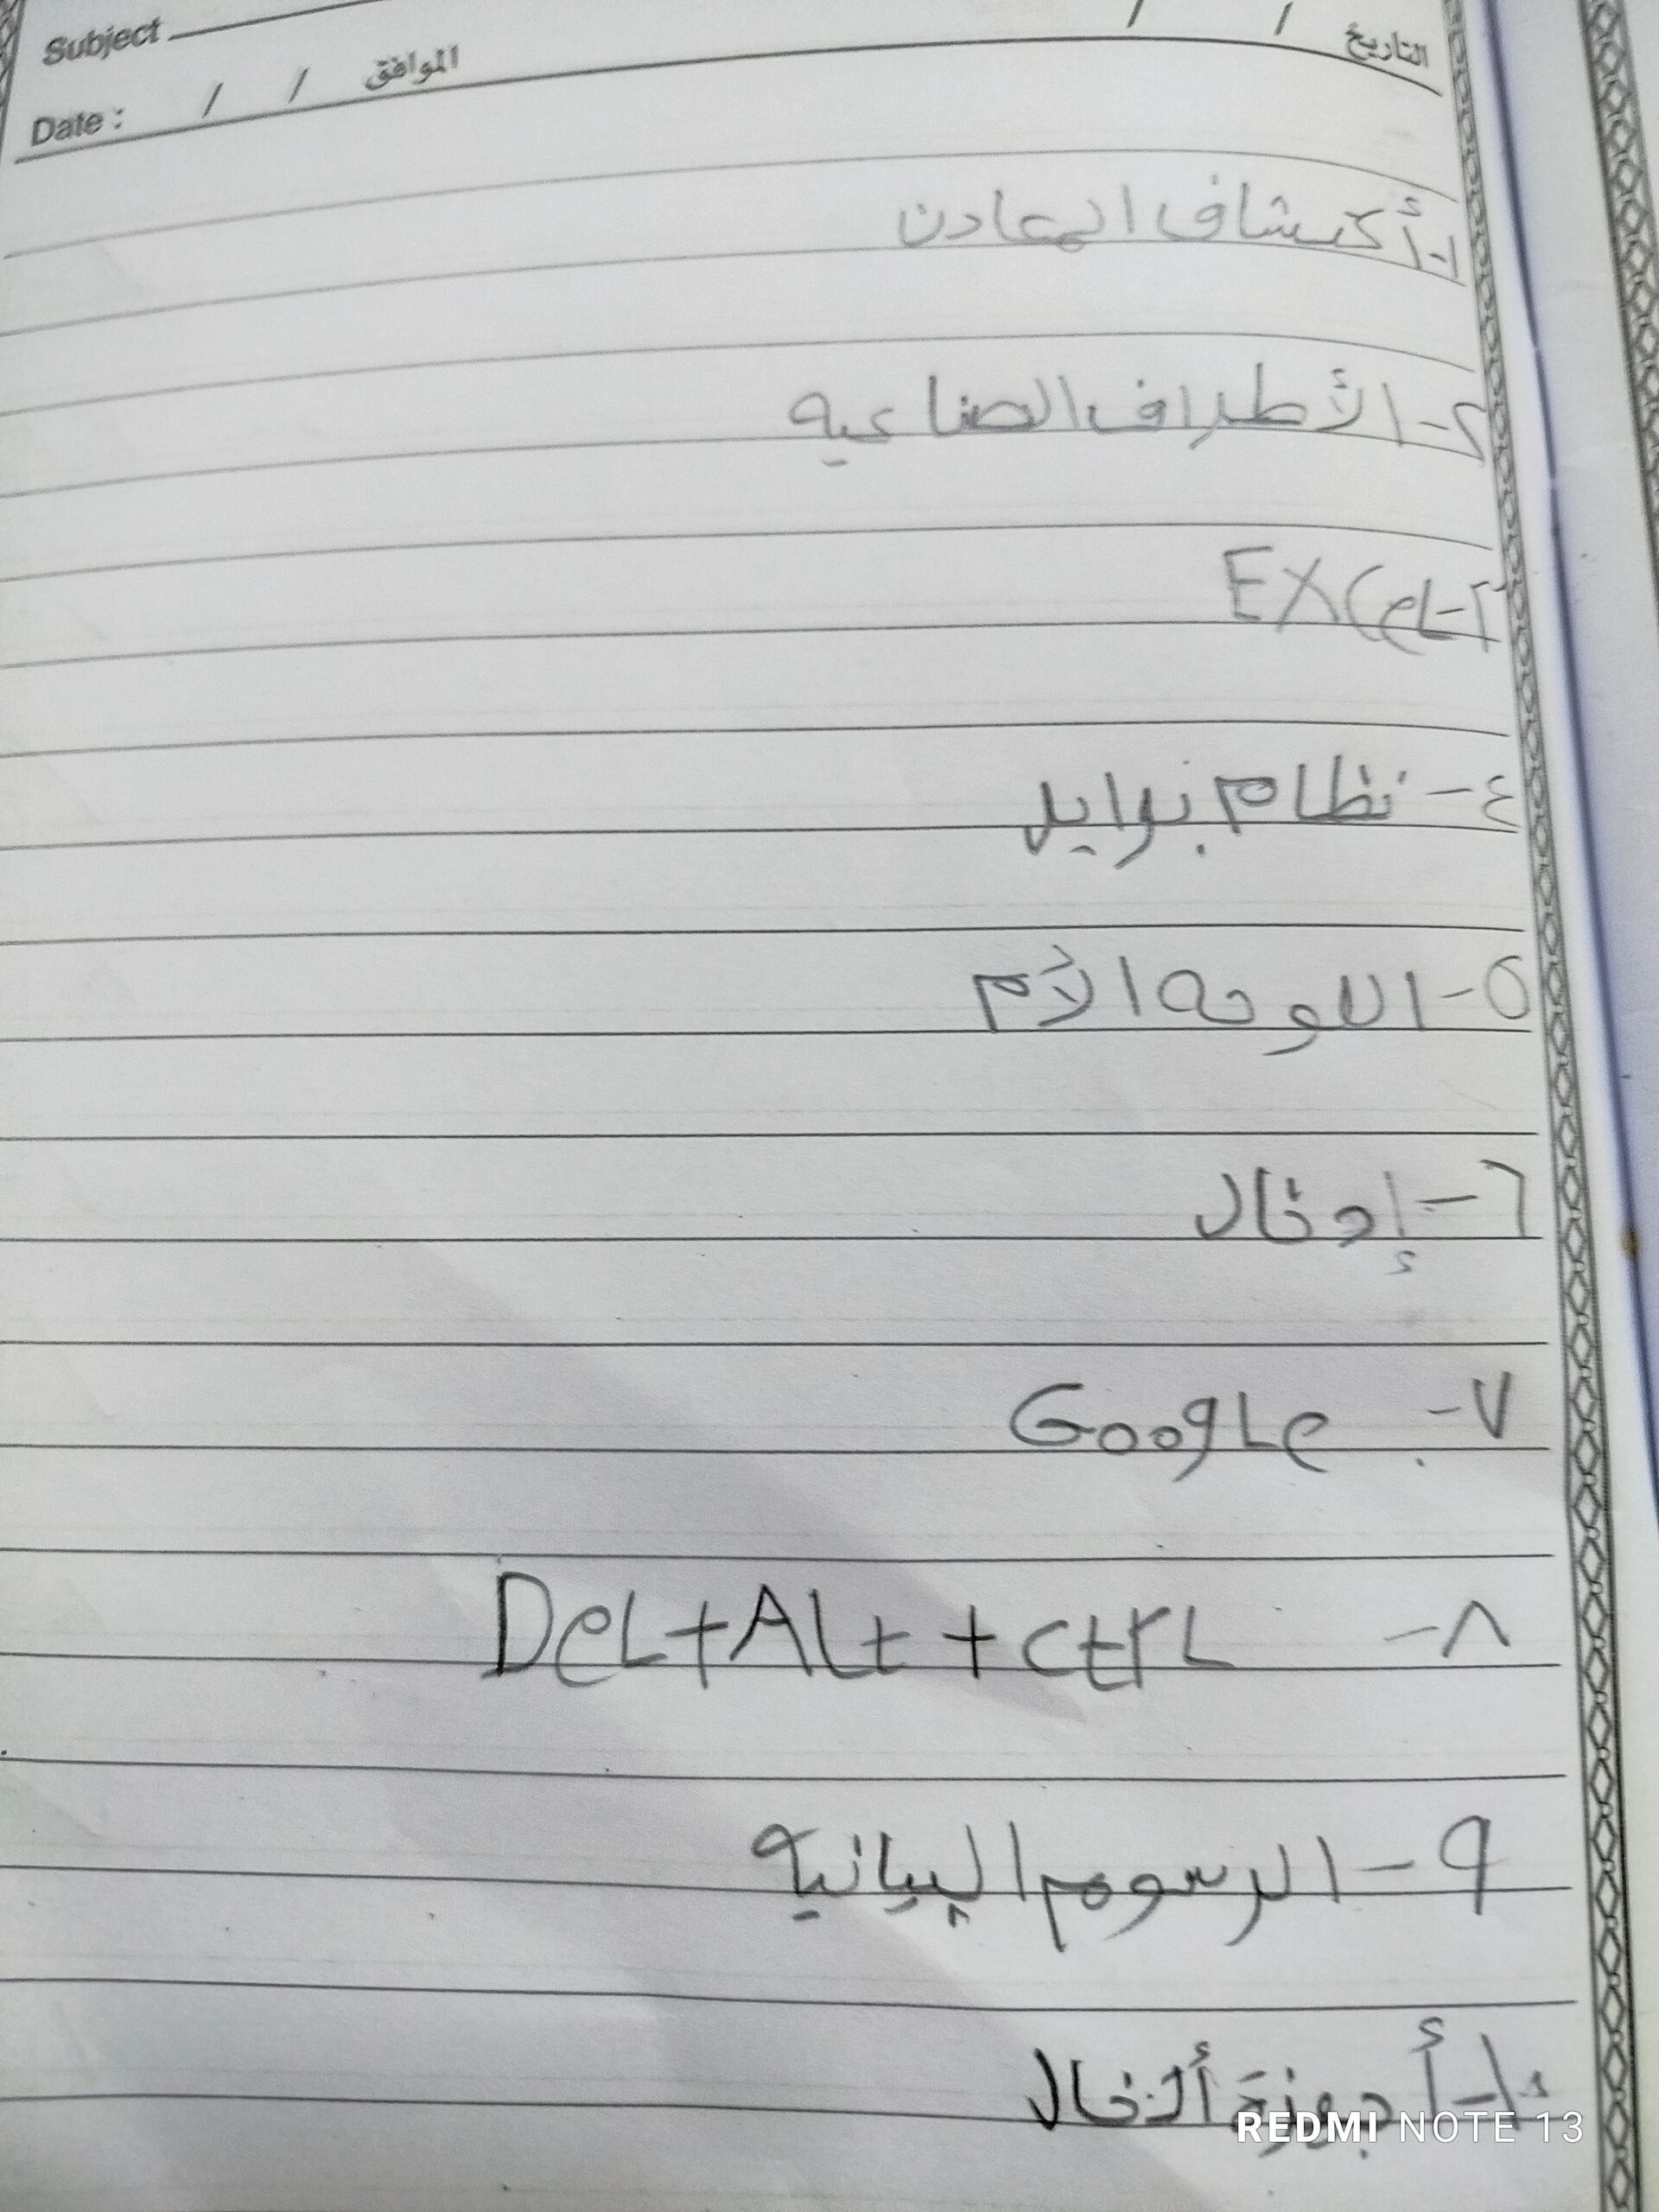 Subject
التاريخ / /
Date : / / الموافق
١- أكتشاف المعادن
٢- الأطراف الصناعيه
٣- EXCeL
٤- نظام بوايل
٥- اللوحه الأم
٦- إدخال
٧- GoogLe
٨- DeL+ALt+CtrL
٩- الرسوم البيانيه
١٠- أجهزة أدخال
REDMI NOTE 13